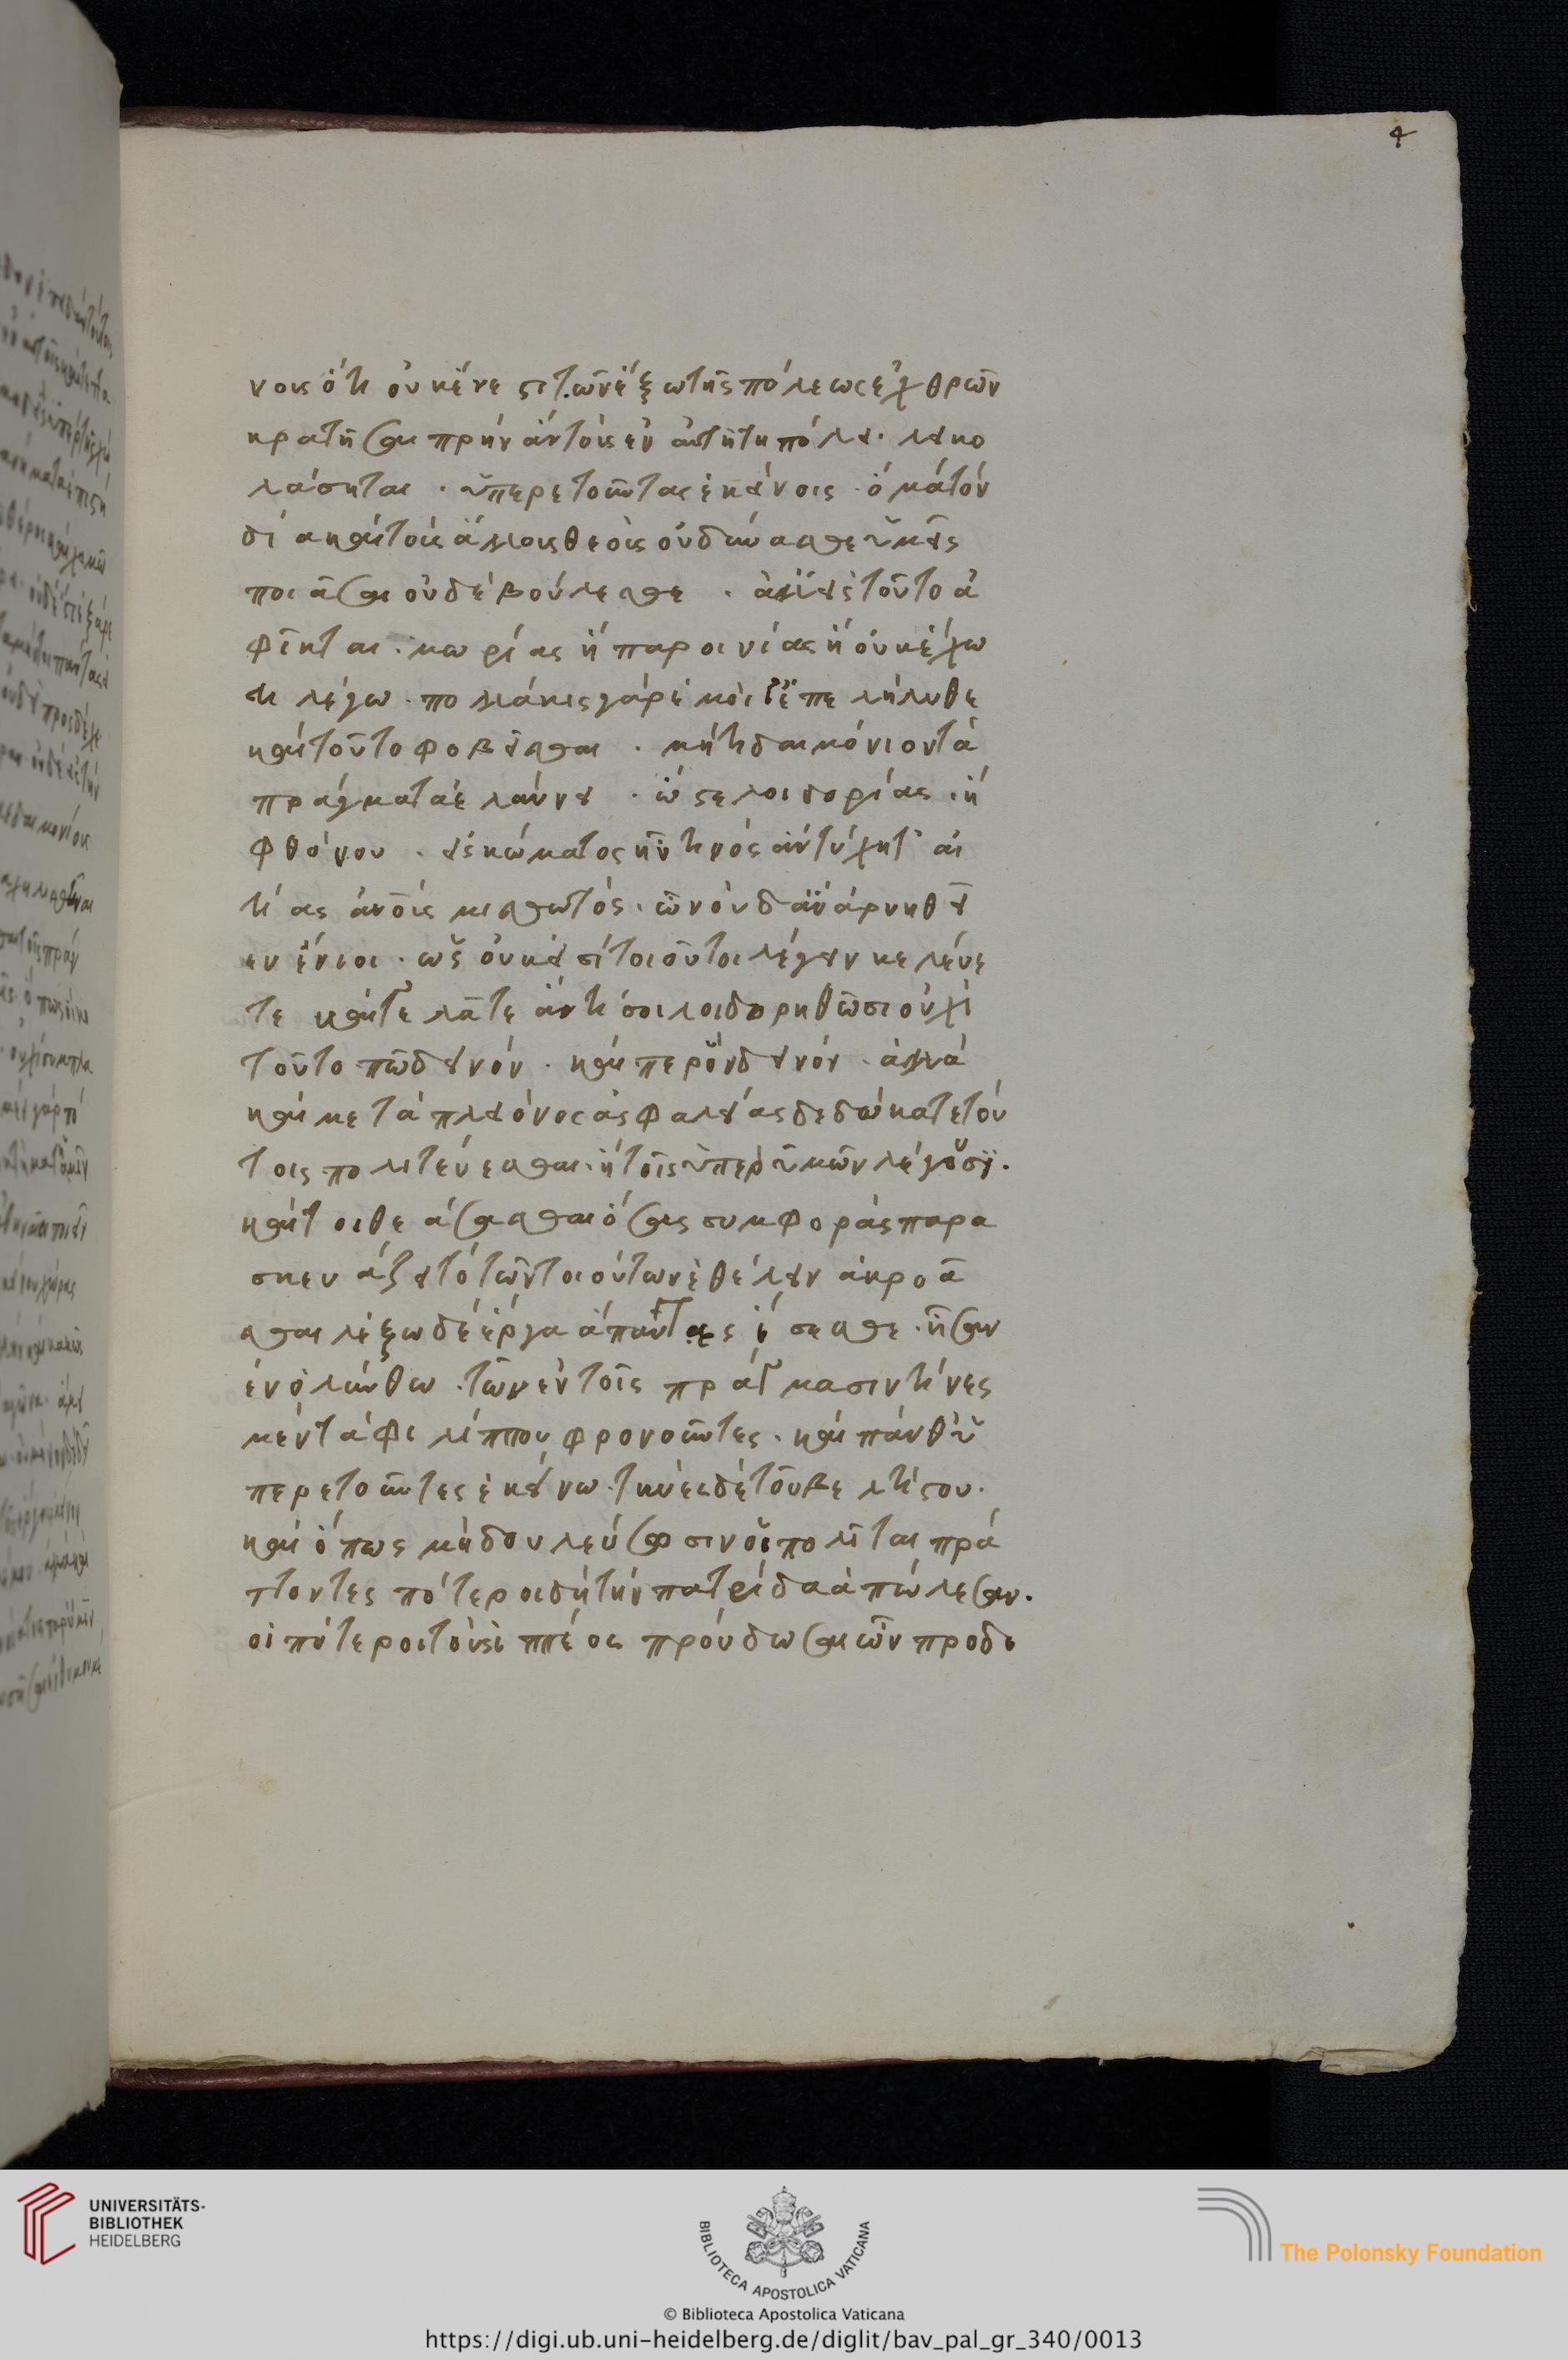 νοις ὅτι οὐκ ἔνεστι τῶν ἔξω τῆς πόλεως ἐχθρῶν
κρατῆσαι πρὴν ἄν τοὶς ἐν αὐτῆ τη πόλει. λεικο
λάσηται . ὑπερετοῦτας ἐκείνοις . ὁ μάτὸν
δί α καὶ τοὶς ἄλλοις θεοὶς οὐδύνασθε ὑμεῖς
ποιᾶσαι οὐδὲ βούλεσθε . ἀλλ' εἰς τοῦτο ἀ
φῖκται . μωρίας ἤ παροινίας ἤ οὐκ ἔχω
τι λέγω . πολλάκις γάρ ἐμοὶ γ' ἐπελήλυθε
καὶ τοῦτο φοβεῖσθαι . μήτι δαιμόνιον τὰ
πράγματα ἐλαύνει . ὥστε λοιδορίας . ἤ
φθόνου . εἰσκώματος ἤν τινὸς ἄν τύχητ' αἰ
τίας ἀνοῖς μισθωτός . ὧν οὐδ' ἄν ἀρνηθεῖ
εν ἔνιοι . ὡς οὐκ εἰσί τοιοῦτοι λέγειν κελεύε
τε καὶ γελᾶτε ἄν τίσοι λοιδορηθῶσι οὐχὶ
τοῦτο πῶ δεινόν . καί περ ὂν δεινόν . ἀλλὰ
καὶ μετὰ πλείονος ἀσφαλείας δεδώκατε τού
τοις πολιτεύεσθαι . ἤ τοῖς ὑπὲρ ὑμῶν λέγουσιν.
καίτοι θεάσασθαι ὅσας συμφορὰς παρα
σκευάζει τὸ τῶν τοιούτων ἐθέλειν ἀκροᾶ
σθαι λέξω δὲ ἔργα ἅπαντας ἔσεσθε . ἦσαν
ἐν ὀλύνθω . τῶν ἐν τοῖς πράγμασιν τινες
μέν τά φιλίππου φρονοῦντες . καὶ πάνθ' ὑ
περετοῦντες ἐκείνω . τινὲς δὲ τοῦ βελτίστου.
καὶ ὅπως μὴ δουλεύσωσιν οἱ πολῖται πρά
ττοντες πότεροι δὴ τὴν πατρίδα ἀπώλεσαν.
οἱ πότεροι τοὺς ἱππέας προύδωσαν ὧν προδο
4
UNIVERSITÄTS-
BIBLIOTHEK
HEIDELBERG
BIBLIOTECA APOSTOLICA VATICANA
The Polonsky Foundation
© Biblioteca Apostolica Vaticana
https://digi.ub.uni-heidelberg.de/diglit/bav_pal_gr_340/0013